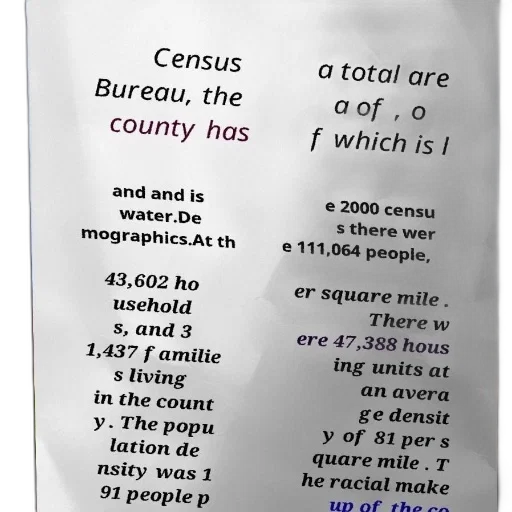 Census
Bureau, the
county has
a total are
a of , o
f which is l
and and is
water.De
mographics.At th
e 2000 censu
s there wer
e 111,064 people,
43,602 ho
usehold
s, and 3
1,437 familie
s living
in the count
y. The popu
lation de
nsity was 1
91 people p
er square mile .
There w
ere 47,388 hous
ing units at
an avera
ge densit
y of 81 per s
quare mile . T
he racial make
up of the co